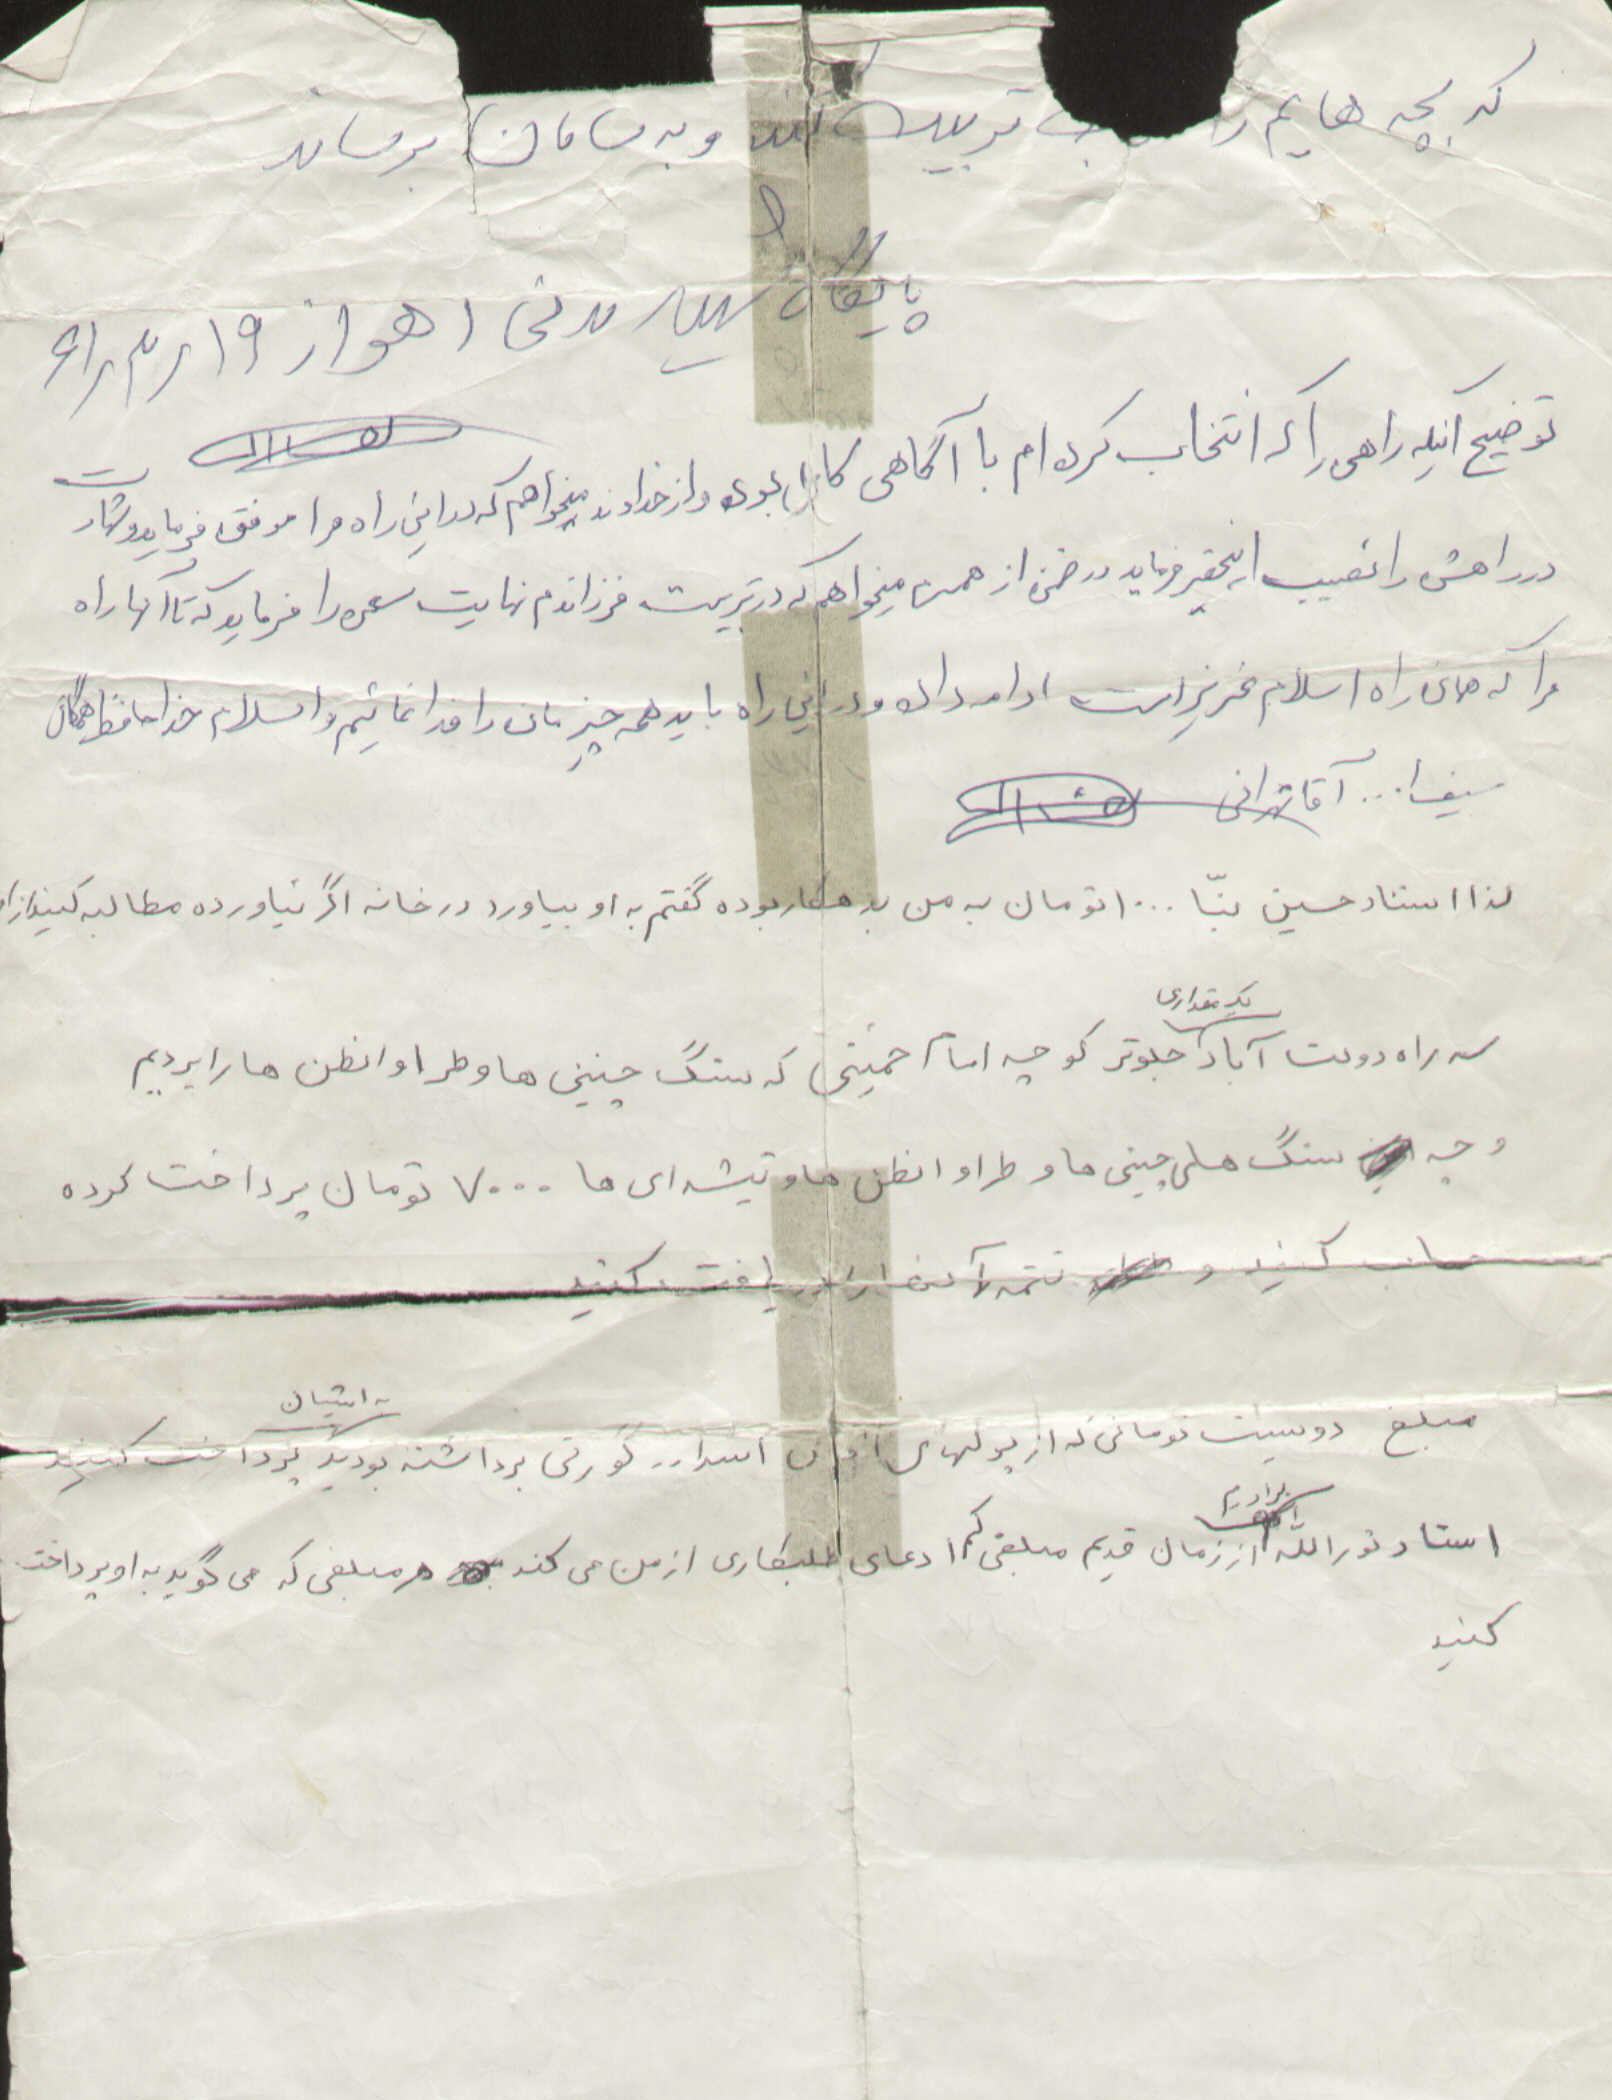 که بچه هایم را خوب تربیت کند و به سامان برساند
پایگاه شهید مدنی اهواز ۱۹ ر ۳ ر ۶۱
توضیح آنکه راهی را که انتخاب کرده ام با آگاهی کامل بوده و از خداوند میخواهم که در این راه مرا موفق فرماید و شهادت
در راهش را نصیب این حقیر فرماید در ضمن از همسرم میخواهم که در تربیت فرزاندم نهایت سعی را فرماید که تا آنها راه
مرا که همان راه اسلام عزیز است ادامه داده و در این راه باید همه چیزمان را فدا نمائیم والسلام خداحافظ همگی
سیف ا... آقا تهرانی
لذا استاد حسین بنّا ۱۰۰۰ تومان به من بدهکار بوده گفتم به او بیاورد در خانه اگر نیاورده مطالبه کنید از او
یک مقداری
سه راه دولت آباد جلوتر کوچه امام خمینی که سنگ چینی ها و طراوانطن ها را بردیم
وجه سنگ های چینی ها و طراوانطن ها و تیشه ای ها ۷۰۰۰ تومان پرداخت کرده
حساب کنید و تتمه آن را دریافت کنید
به ایشان
مبلغ دویست تومانی که از پولهای اسدا.. گورتی برداشته بودید پرداخت کنید
برادرم
استاد نورالله از زمان قدیم مبلغی کم ادعای طلبکاری از من می کند هر مبلغی که می گوید به او پرداخت
کنید